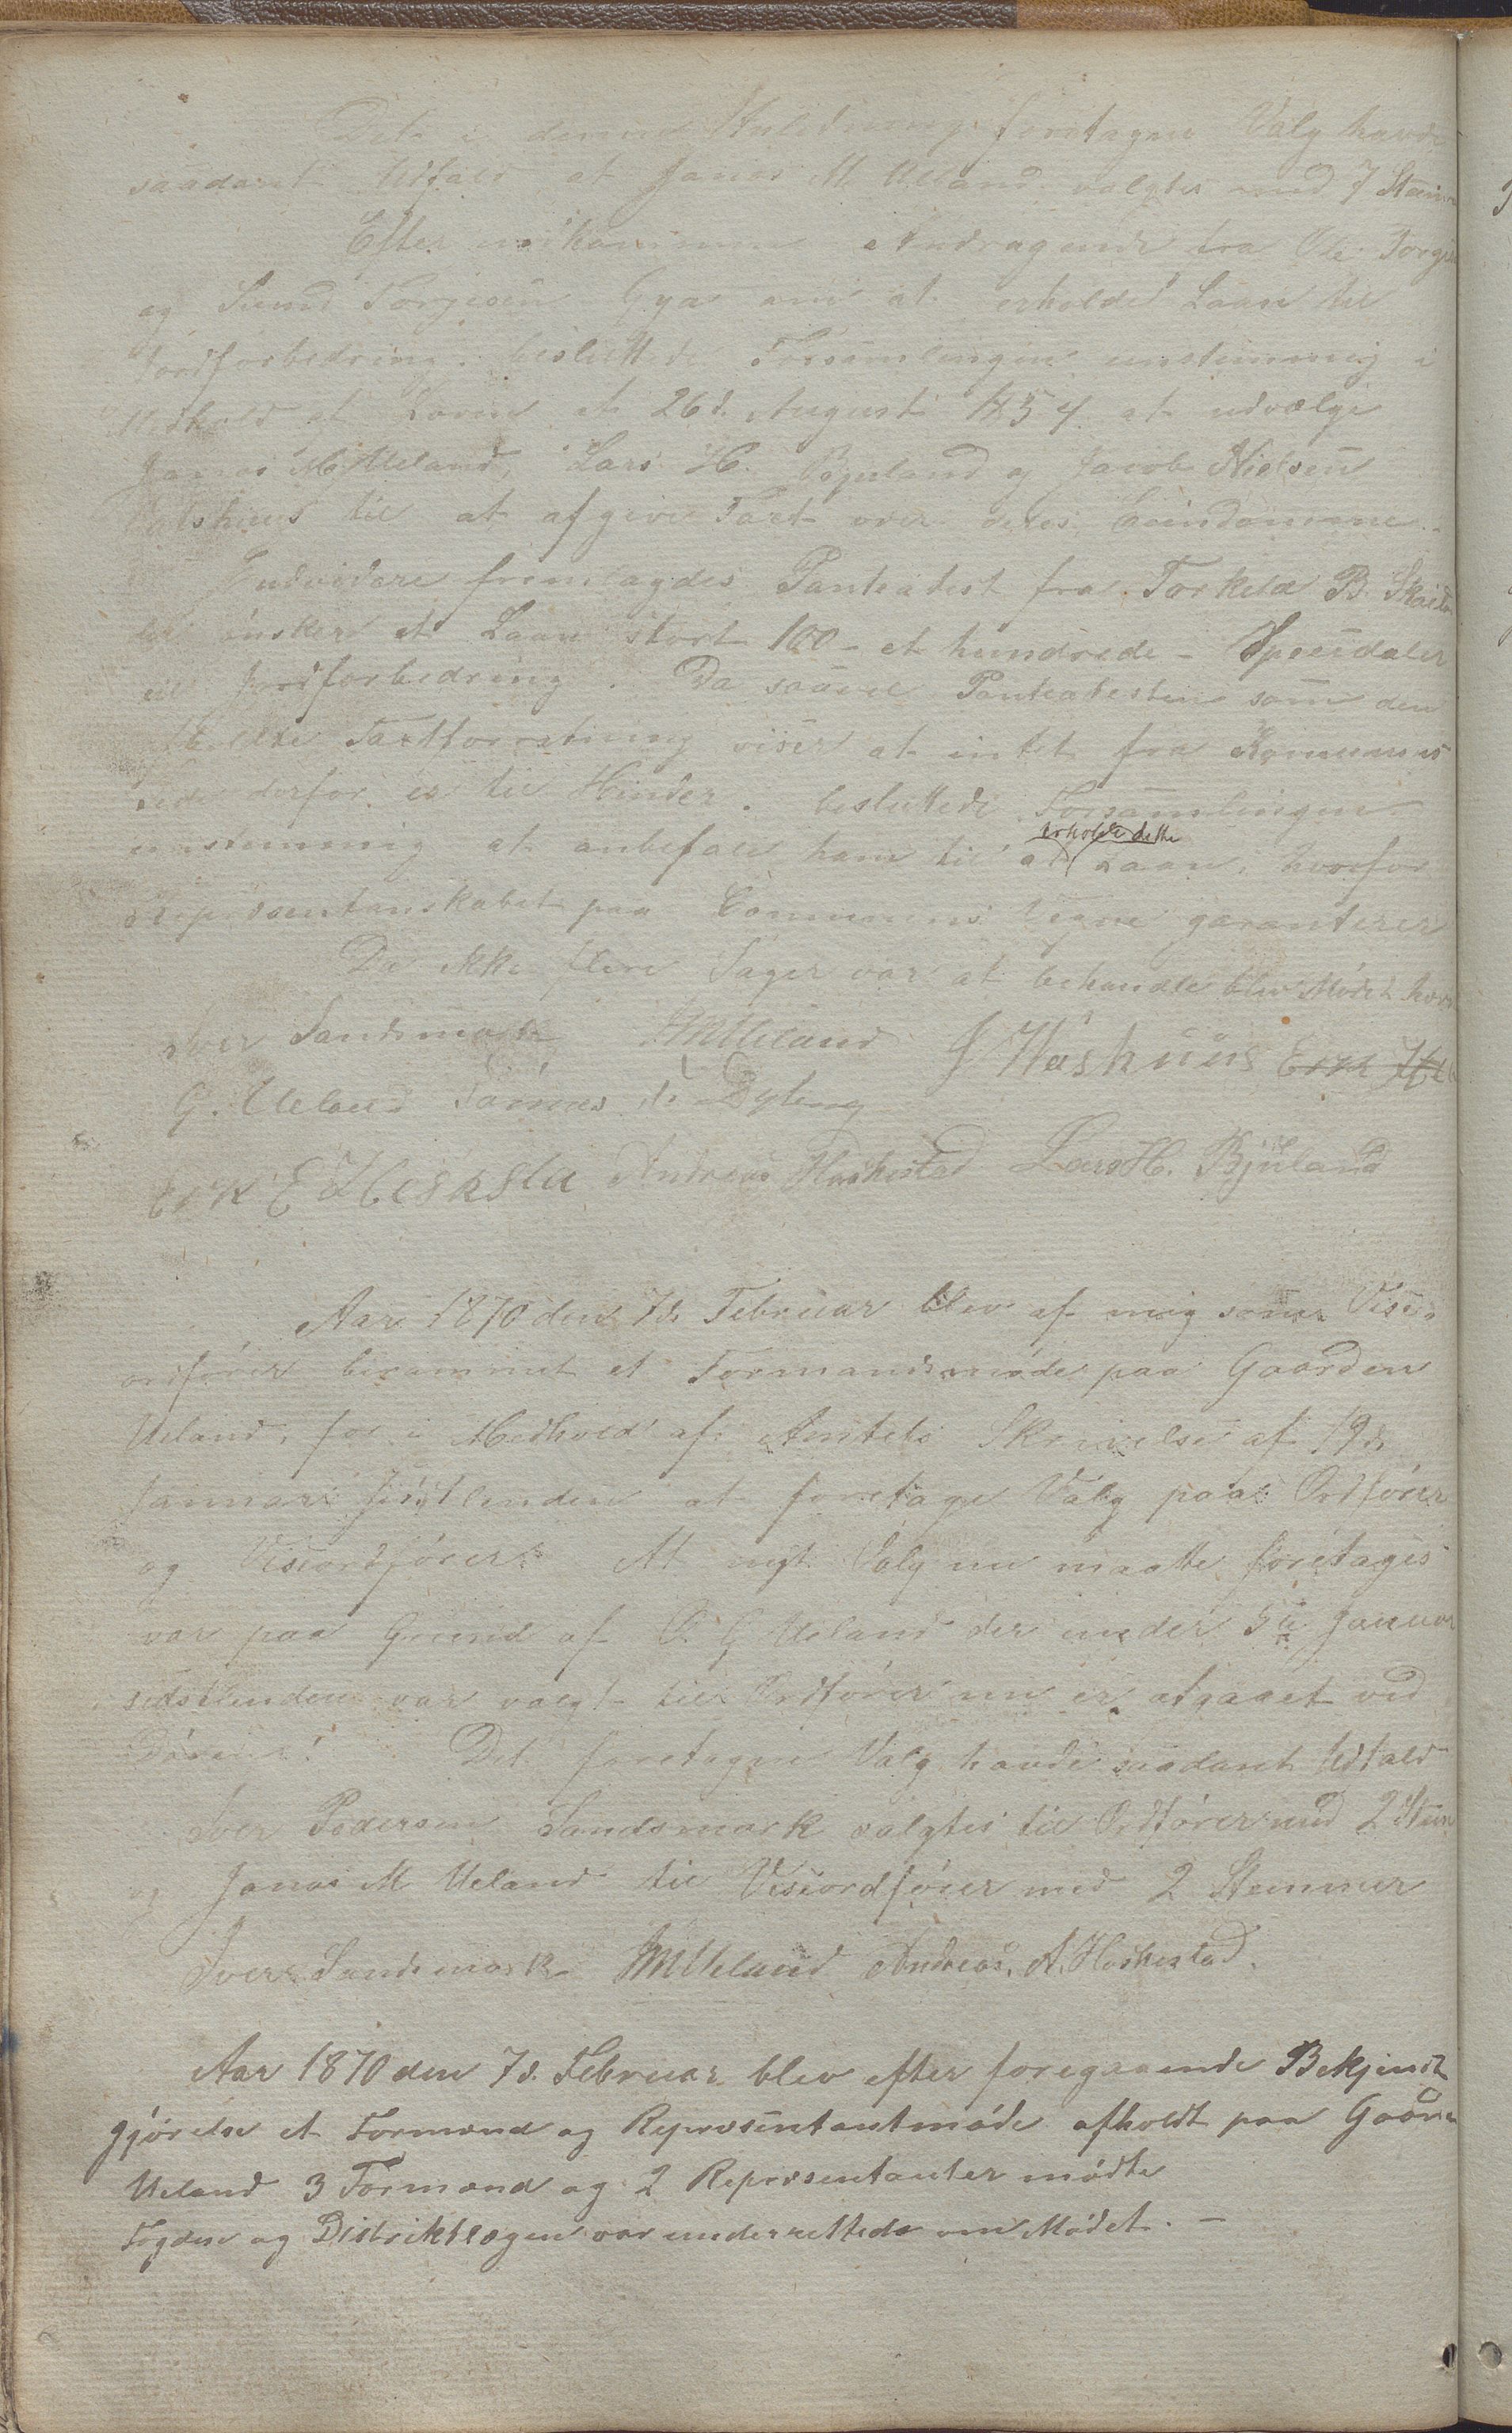 Det i denne Anledning foretagne Valg havde
saadant Udfald at Jonas M. Ueland valgtes med 7 Stem
Efter indkommne Andragende fra Ole Torgie
og Svend Torgiesen Gya om at erholde Laan til
Jordforbedring besluttede Forsamlingen enstemmig i
Medhold af Loven af 26d. August 1854 at udvælge
Jonas M Ueland, Lars H. Bjuland og Jacob Nielsen
til at afgive Taxt over deres Eiendomme.
Endvidere fremlagdes Panteatest fra Torkild B.
der ønsker et Laan stort 100 - et hundrede - Speeidaler
til Jordforbedring. Da saavel Panteatesten som den
afholdte Taxtforretning viser at intet fra Komunens
Side derfor er til Hinder. besluttede Forsamlingen
enstemmig at anbefale ham til at erholde dette Laan, hvorfor
Repræsentanskabet paa Communens Vegne garanterer
Da ikke flere Sager var at behandle blev Mødet hæv
Iver Sandsmark JMUeland J Washuus Erik
G. Ueland Tømes Dyting
Erik E Heskstad Andreas Haskestad Lars H. Bjuland
Aar 1870 den 7d. Februar blev af mig som Vise-
ordfører berammet et Formandsmøde paa Gaarden
Ueland, for i Medhold af Amtets Skrivelse af 19d.
Januar sidstlenden at foretage Valg paa Ordfører
og Viseordfører. At nyt Valg nu maatte foretages
var paa Grund af O. G Ueland der under 5te Januar
sidstlenden var valgt til Ordfører nu er afgaaet ved
Døden. Det foretagne Valg havde saadant Udfald
Iver Pedersen Sandsmark valgtes til Ordfører med 2 Stem
og Jonas M Ueland til Viseordfører med 2 Stemmer
Iver Sandsmark JMUeland Andreas A. Haskestad.
Aar 1870 den 7d. Februar blev efter foregaaende Bekjendt
gjørelse et Formænd og Repræsentantmøde afholdt paa Gaarden
Ueland 3 Formænd og 2 Repræsentanter mødte
Fogden og Distriktlægen var underrettede om Mødet. -